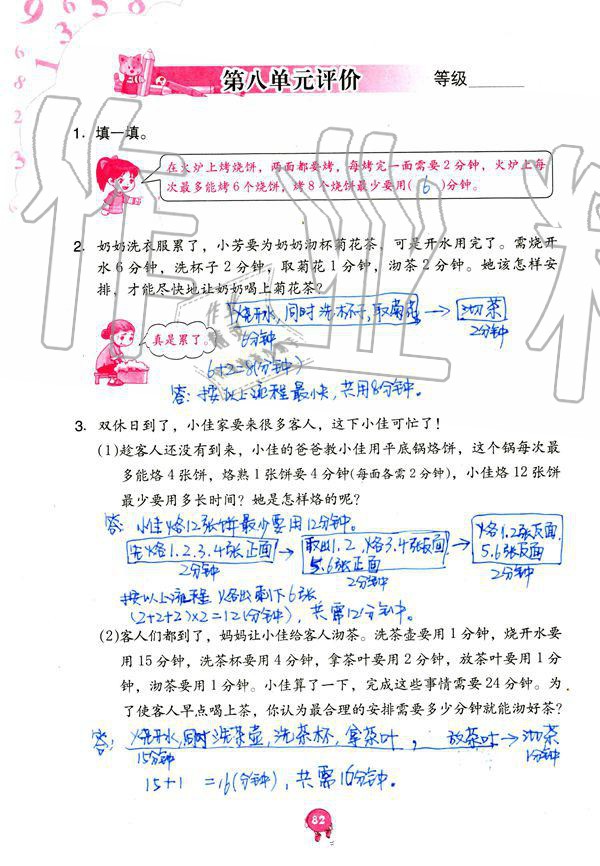 第八单元评价 等级
1. 填一填。
在火炉上烤烧饼，两面都要烤，每烤完一面需要2分钟，火炉上每
次最多能烤6个烧饼，烤8个烧饼最少要用( 6 )分钟。
2. 奶奶洗衣服累了，小芳要为奶奶沏杯菊花茶，可是开水用完了。需烧开
水6分钟，洗杯子2分钟，取菊花1分钟，沏茶2分钟。她该怎样安
排，才能尽快地让奶奶喝上菊花茶？
烧开水，同时洗杯子，取菊花 → 沏茶
6分钟 2分钟
真是累了。
6+2=8(分钟)
答：按以上流程最快，共用8分钟。
3. 双休日到了，小佳家要来很多客人，这下小佳可忙了！
(1)趁客人还没有到来，小佳的爸爸教小佳用平底锅烙饼，这个锅每次最
多能烙4张饼，烙熟1张饼要4分钟(每面各需2分钟)，小佳烙12张饼
最少要用多长时间？她是怎样烙的呢？
答：小佳烙12张饼最少要用12分钟。
先烙1.2.3.4张正面 → 取出1.2，烙3.4张反面 5.6张正面 → 烙1.2张反面，5.6张反面
2分钟 2分钟 2分钟
按以上流程烙出剩下6张
(2+2+2)×2=12(分钟)，共需12分钟。
(2)客人们都到了，妈妈让小佳给客人沏茶。洗茶壶要用1分钟，烧开水要
用15分钟，洗茶杯要用4分钟，拿茶叶要用2分钟，放茶叶要用1分
钟，沏茶要用1分钟。小佳算了一下，完成这些事情需要24分钟。为
了使客人早点喝上茶，你认为最合理的安排需要多少分钟就能沏好茶？
答：烧开水，同时洗茶壶，洗茶杯，拿茶叶，放茶叶→沏茶
15分钟 1分钟
15+1=16(分钟)，共需16分钟。
82